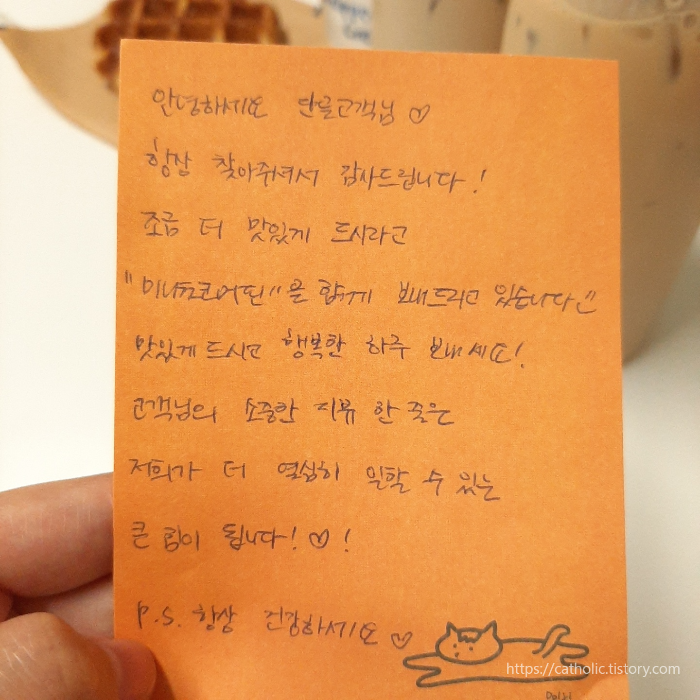 안녕하세요 단골고객님 ♡
항상 찾아주셔서 감사드립니다!
조금 더 맛있게 드시라고
"미니츄러어띤"을 함께 보내드리고 있습니다"
맛있게 드시고 행복한 하루 보내세요!
고객님의 소중한 리뷰 한 줄은
저희가 더 열심히 일할 수 있는
큰 힘이 됩니다! ♡ !
p.s. 항상 건강하세요 ♡
https://catholic.tistory.com